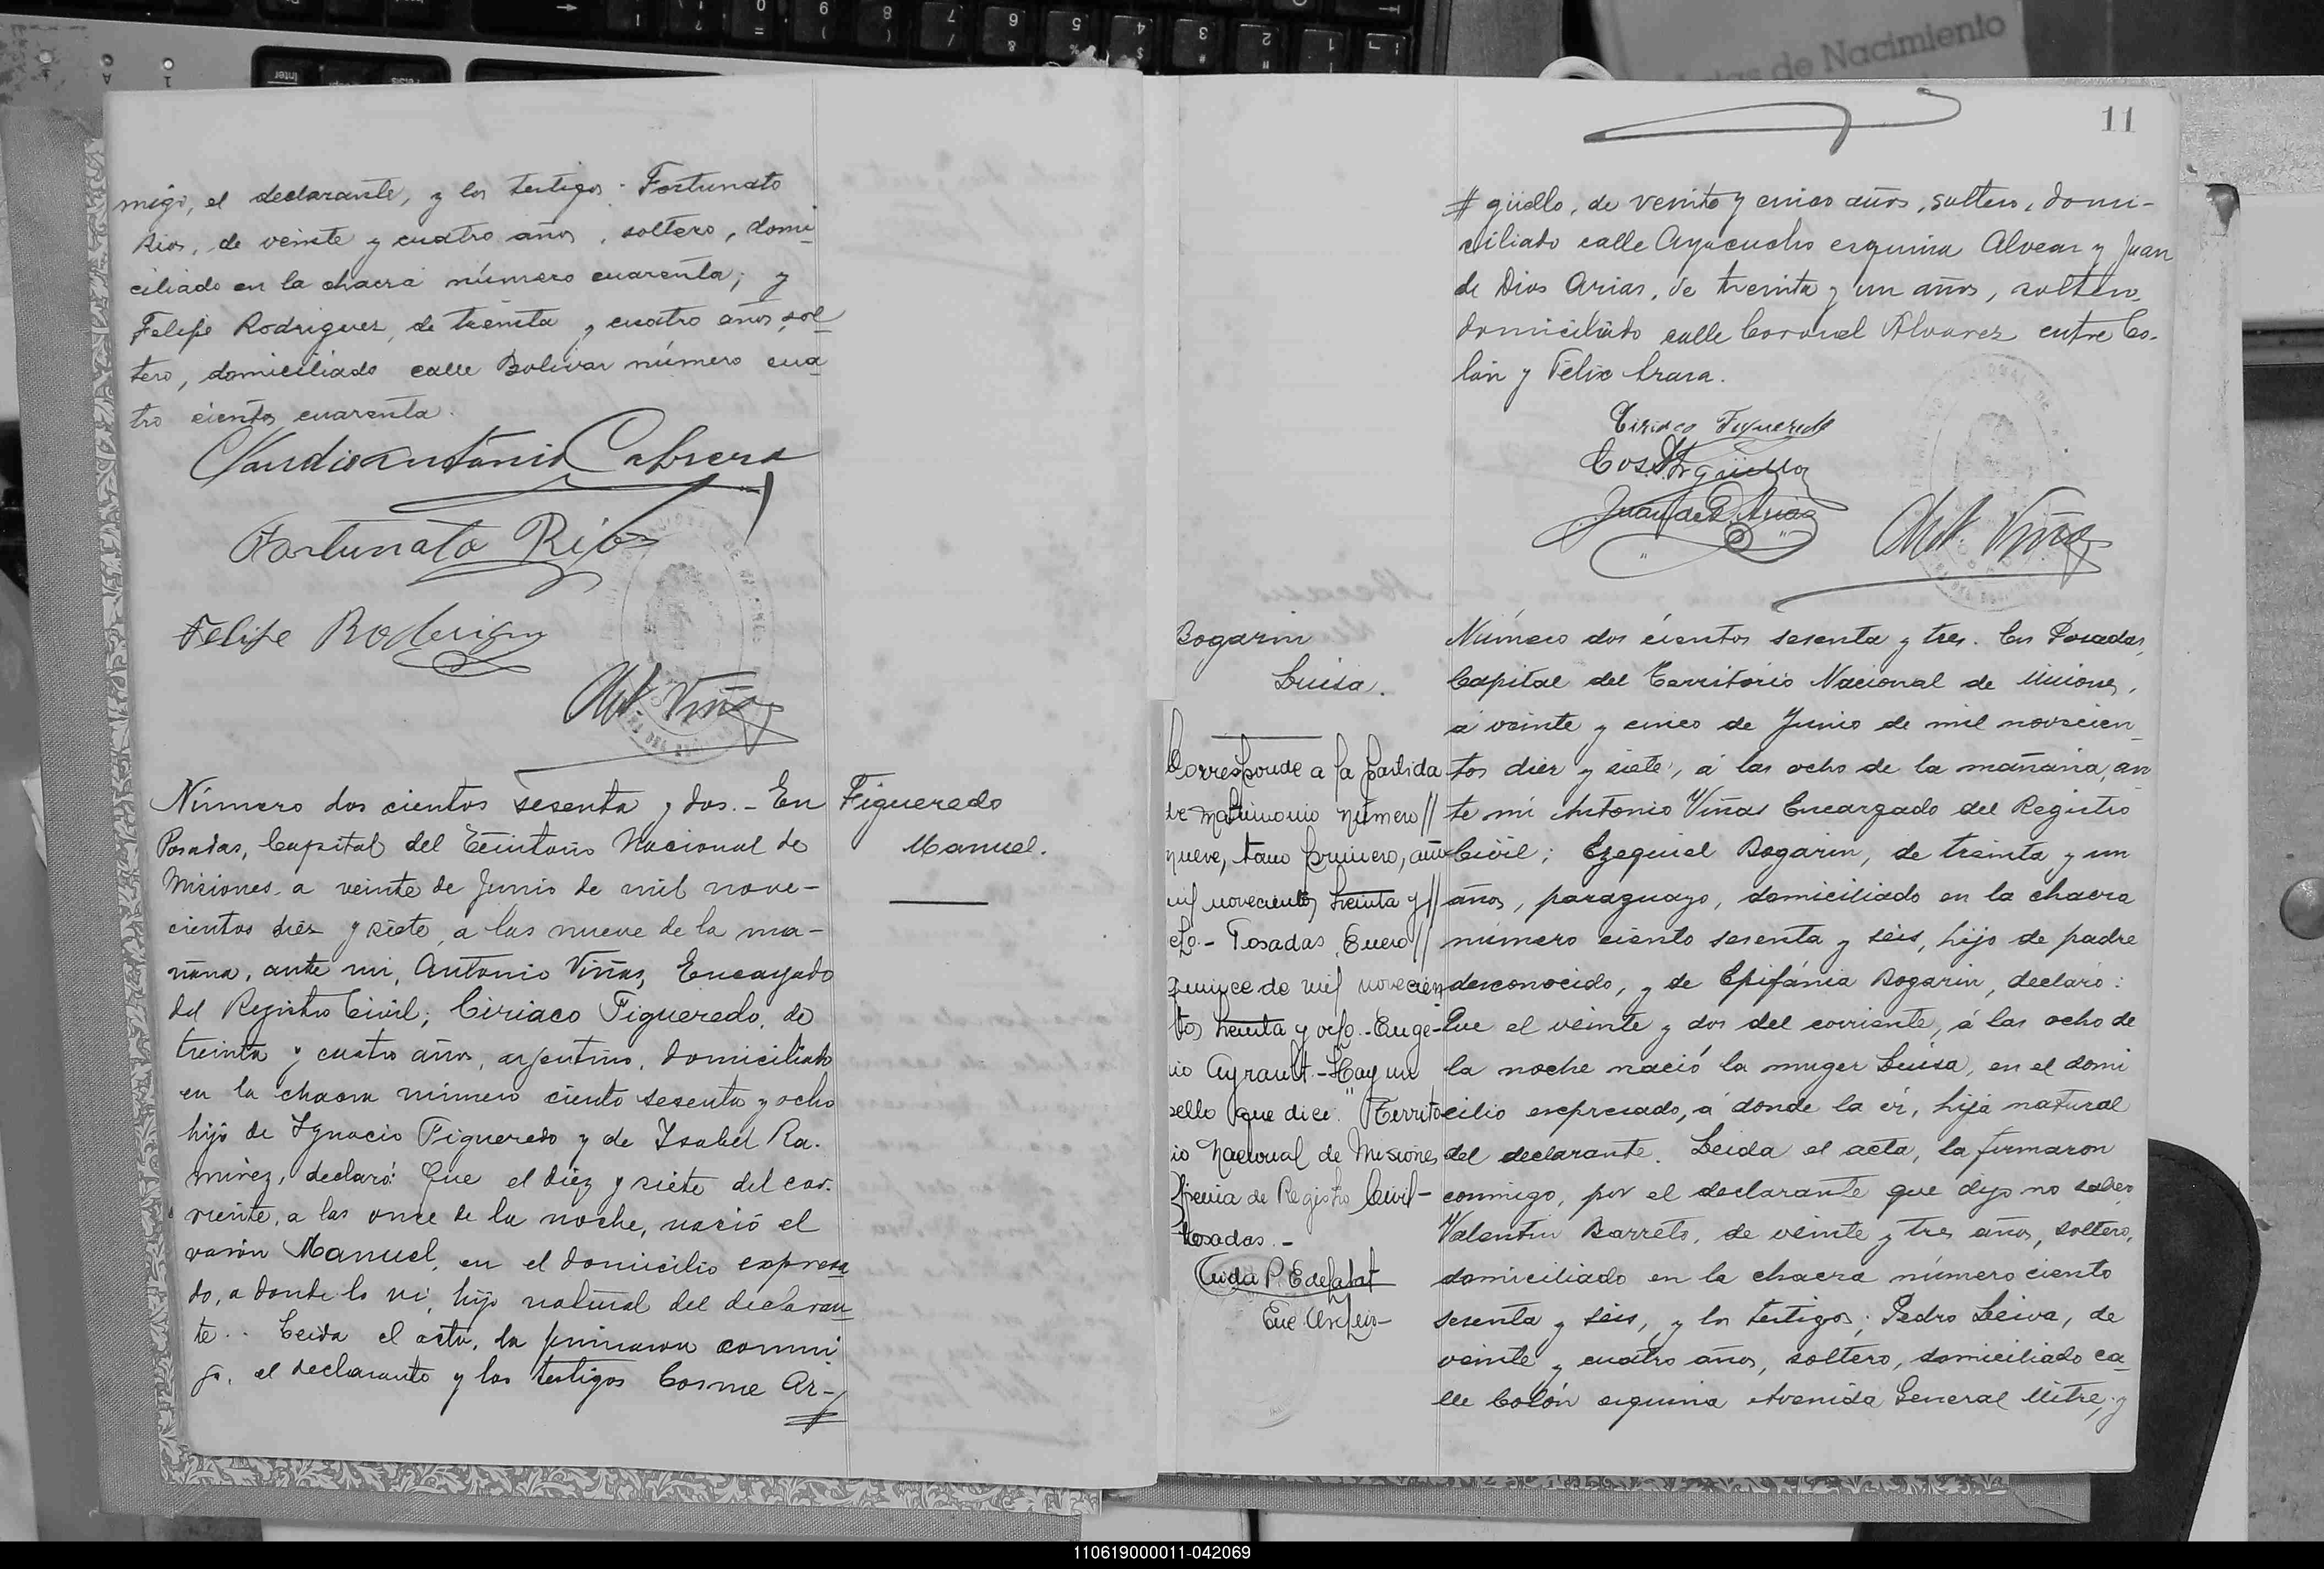 Actas de Nacimiento
migo, el declarante, y los testigos: Fortunato
Rios, de veinte y cuatro años, soltero, domi
ciliado en la chacra número cuarenta; y
Felipe Rodriguez, de treinta y cuatro años, sol
tero, domiciliado calle Bolivar número cua
tro cientos cuarenta.
Claudio Antonio Cabrera
Fortunato Rios
Felipe Rodriguez
Ant. Viñas
Número dos cientos sesenta y dos. - En
Posadas, Capital del Territorio Nacional de
Misiones, a veinte de Junio de mil nove-
cientos diez y siete, a las nueve de la ma-
ñana, ante mi, Antonio Viñas, Encargado
del Registro Civil; Ciriaco Figueredo, de
treinta y cuatro años, argentino, domiciliado
en la chacra número ciento sesenta y ocho
hijo de Ygnacio Figueredo y de Ysabel Ra-
mirez, declaró: Que el diez y siete del cor-
riente, a las once de la noche, nació el
varón Manuel, en el domicilio expresa
do, a donde lo vi, hijo natural del declaran
te. Leida el acta, la firmaron conmi
go, el declarante y los testigos Cosme Ar-
Figueredo
Manuel.
11
güello, de veinte y cinco años, soltero, domi-
ciliado calle Ayacucho esquina Alvear y Juan
de Dios Arias, de treinta y un años, soltero,
domiciliado calle Coronel Alvarez entre Co-
lón y Félix
Ciriaco Figueredo
Cos. Argüello
Juan de D. Arias
Ant. Viñas
Bogarin
Luisa.
Corresponde a la partida
de matrimonio número //
nueve, tomo primero, año
mil novecientos treinta y //
cho - Posadas, Enero //
quince de mil novecien
tos treinta y ocho.- Euge-
nio Ayrault.- Hay un
sello que dice: "Territo
rio Nacional de Misiones
de Registro Civil-
Posadas.-
Número dos cientos sesenta y tres. En Posadas,
Capital del Territorio Nacional de Misiones,
á veinte y cinco de Junio de mil novecien
tos diez y siete, á las ocho de la mañana, an
te mi Antonio Viñas Encargado del Registro
Civil; Ezequiel Bogarin, de treinta y un
años, paraguayo, domiciliado en la chacra
número ciento sesenta y seis, hijo de padre
desconocido, y de Epifánia Bogarin, declaró:
Que el veinte y dos del corriente, á las ocho de
la noche nació la muger Luisa, en el domi
cilio expresado, á donde la vi, hija natural
del declarante. Leida el acta, la firmaron
conmigo, por el declarante que dijo no saber
Valentin Barreto, de veinte y tres años, soltero,
domiciliado en la chacra número ciento
sesenta y seis, y los testigos; Pedro Leiva, de
veinte y cuatro años, soltero, domiciliado ca
lle Colón esquina Avenida General Mitre; y
110619000011-042069